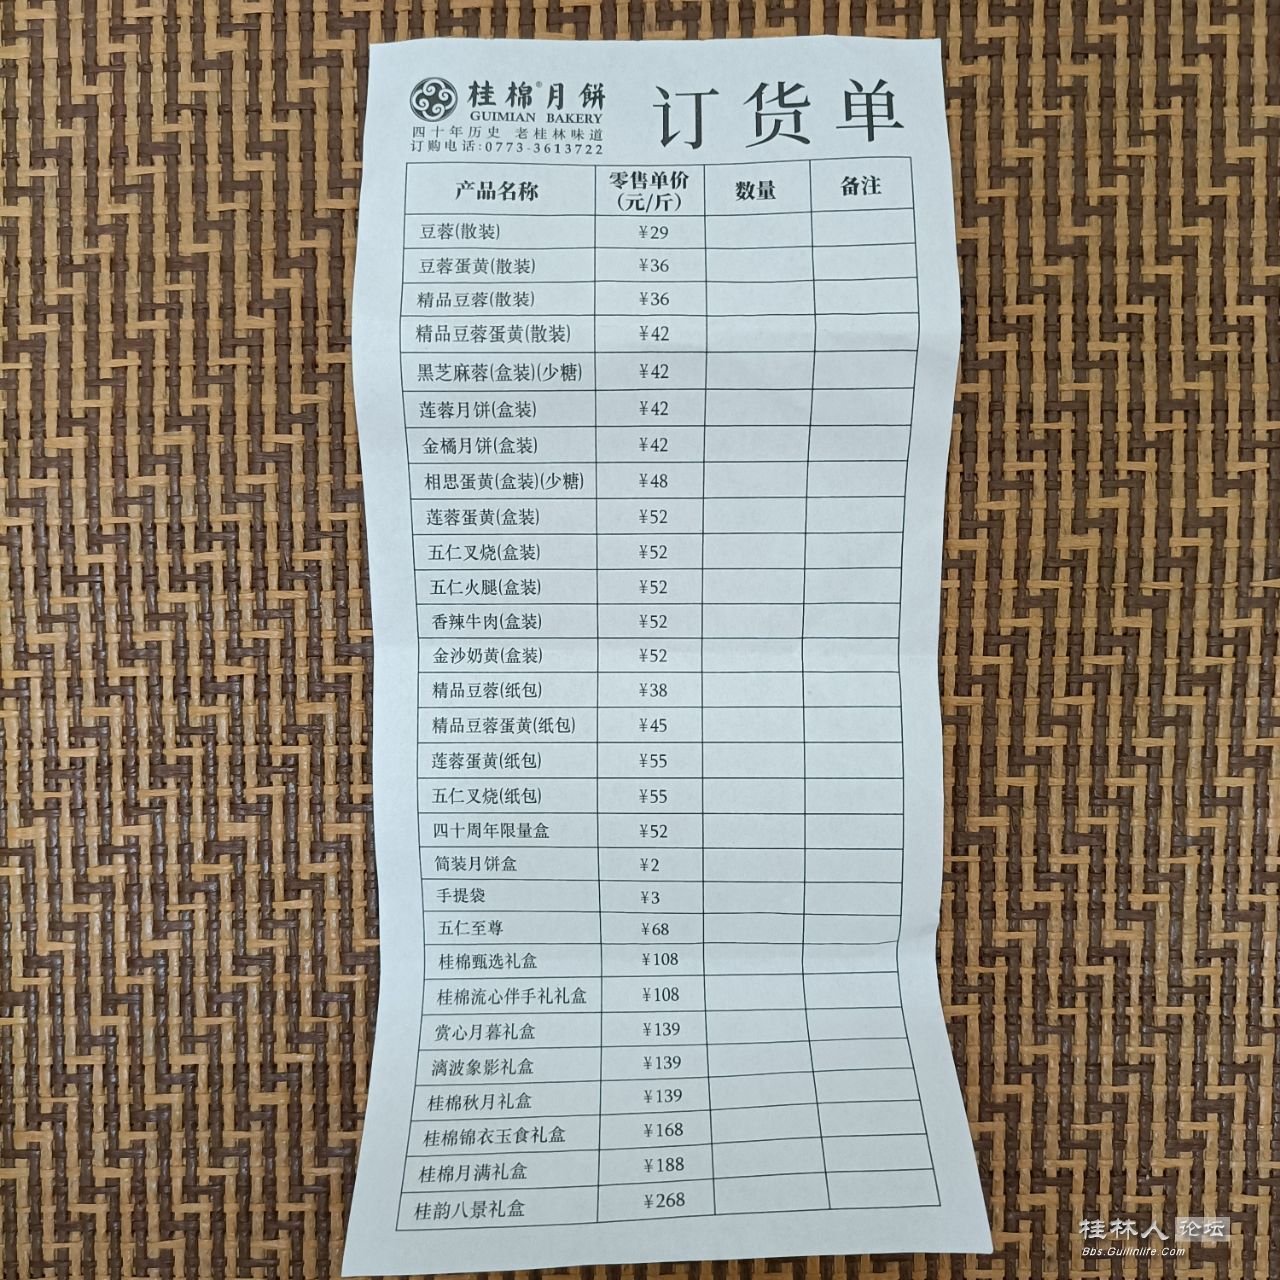 桂棉®月餅
GUIMIAN BAKERY
四十年历史 老桂林味道
订购电话:0773-3613722
订货单
产品名称 零售单价(元/斤) 数量 备注
豆蓉(散装) ¥29
豆蓉蛋黄(散装) ¥36
精品豆蓉(散装) ¥36
精品豆蓉蛋黄(散装) ¥42
黑芝麻蓉(盒装)(少糖) ¥42
莲蓉月饼(盒装) ¥42
金橘月饼(盒装) ¥42
相思蛋黄(盒装)(少糖) ¥48
莲蓉蛋黄(盒装) ¥52
五仁叉烧(盒装) ¥52
五仁火腿(盒装) ¥52
香辣牛肉(盒装) ¥52
金沙奶黄(盒装) ¥52
精品豆蓉(纸包) ¥38
精品豆蓉蛋黄(纸包) ¥45
莲蓉蛋黄(纸包) ¥55
五仁叉烧(纸包) ¥55
四十周年限量盒 ¥52
简装月饼盒 ¥2
手提袋 ¥3
五仁至尊 ¥68
桂棉甄选礼盒 ¥108
桂棉流心伴手礼礼盒 ¥108
赏心月暮礼盒 ¥139
漓波象影礼盒 ¥139
桂棉秋月礼盒 ¥139
桂棉锦衣玉食礼盒 ¥168
桂棉月满礼盒 ¥188
桂韵八景礼盒 ¥268
桂林人论坛
Bbs.Guilinlife.com